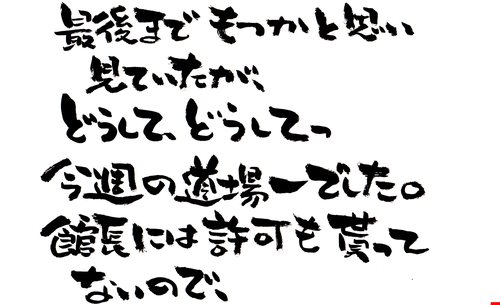 最後までもつかと思い
見ていたが、
どうして、どうしてっ
今週の道場一でした。
館長には許可も貰って
ないので、